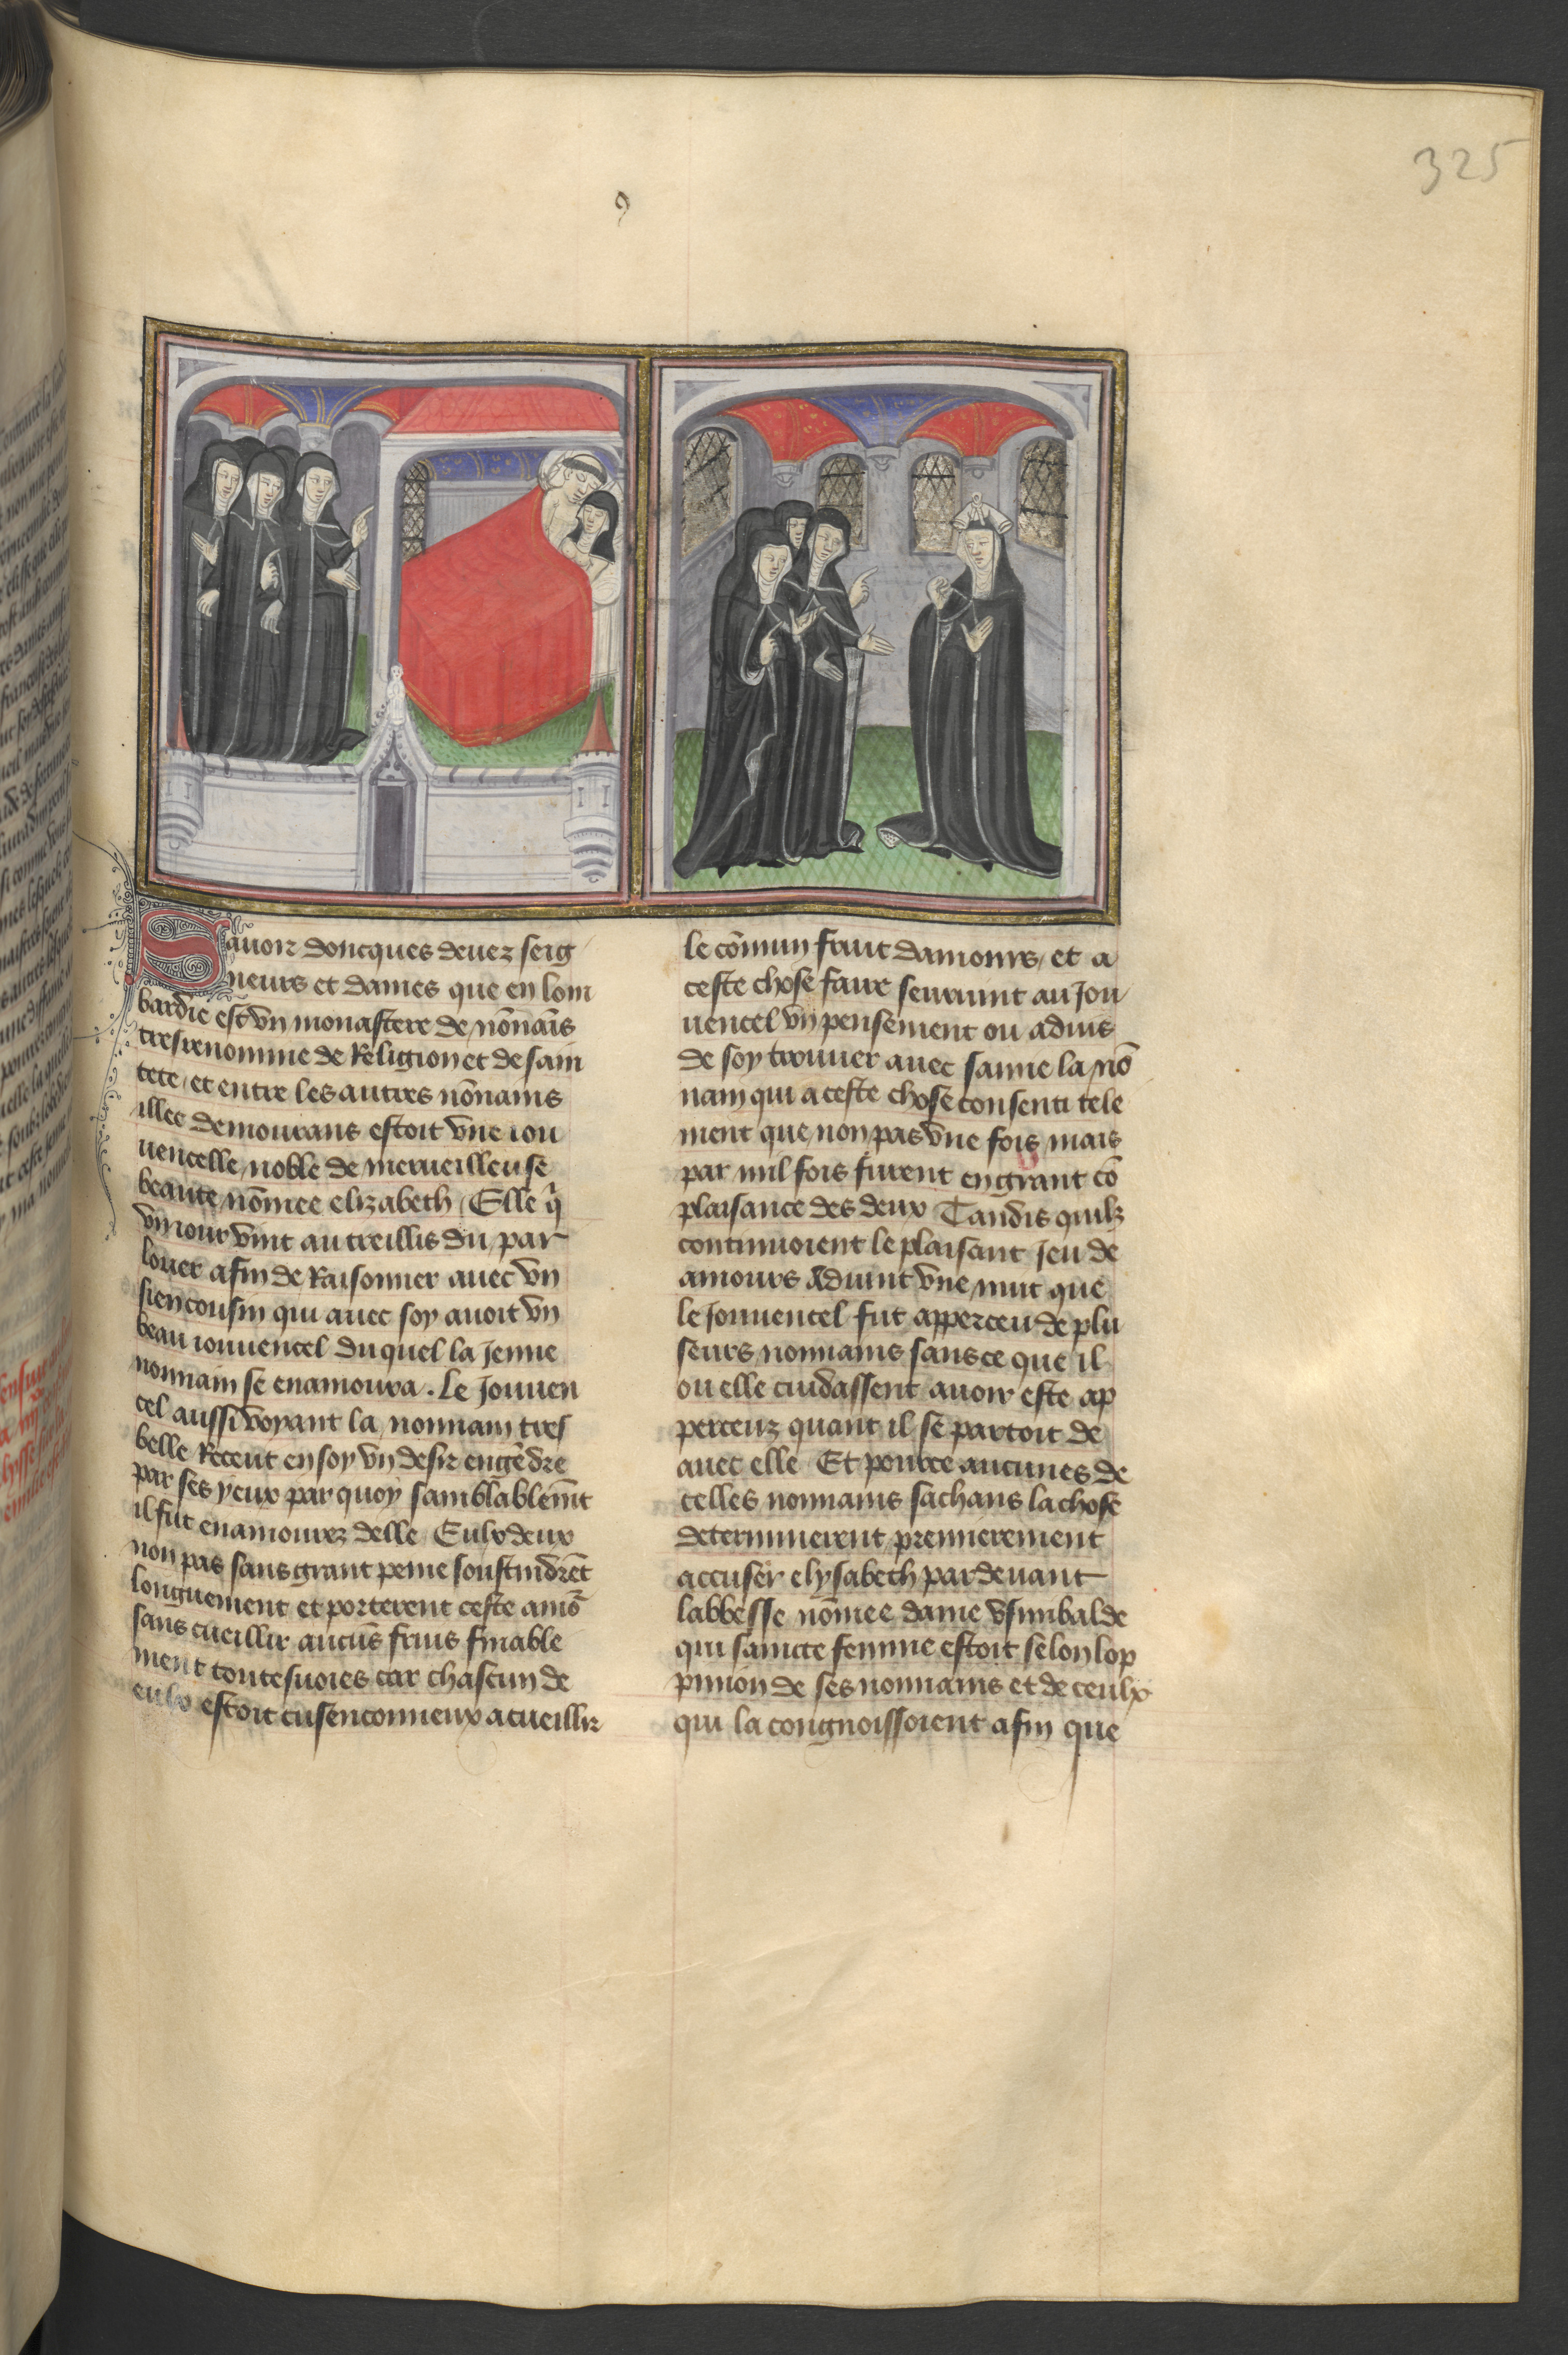 325
9
Sauoir doncques deuez seig
neurs et dames que en lom
bardie est vn monastere de nōnaīs
tresrenomme de Religion et de sain
tete / et entre les autres nōnains
illec demourans estoit vne iou
uencelle noble de merueilleuse
beaute nōmee elizabeth / Elle q̄
vn iour vint au treillis du par
louer afin de Raisonner auec vn
sien cousin qui auec soy auoit vn
beau iouuencel duquel la Jenne
nonnain se enamoura . Le Jouuen
cel aussi voyant la nonnain tres
belle Receut en soy vn desir engēdre
par ses yeux par quoy samblablemēt
il fut enamourez delle / Eulx deux
non pas sans grant peine soustindrēt
longuement et porterent ceste amor̄
sans cueillir aucūs fruis finable
ment toutesuoies car chascun de
eulx estoit cusenconneux a cueillir
le cōmun fruit damours / et a
ceste chose faire seuruint au Jou
uencel vn pensement ou aduis
de soy trouuer auec samie la nō
nain qui a ceste chose consenti tele
ment que non pas vne fois mais
par mil fois furent en grant cō
plaisance des deux Tandis quilz
continuoient le plaisant Jeu de
amours Aduint vne nuit que
le Jouuencel fut apperceu de plu
seurs nonnains sans ce que il
ou elle cuidassent auoir este ap
perceuz quant il se partoit de
auec elle Et pource aucunes de
celles nonnains sachans la chose
determinerent premierement
accuser elysabeth par deuant
labbesse nōmee dame vsimbalde
qui saincte femme estoit selon lop
pinion de ses nonnains et de ceulx
qui la congnoissoient afin que